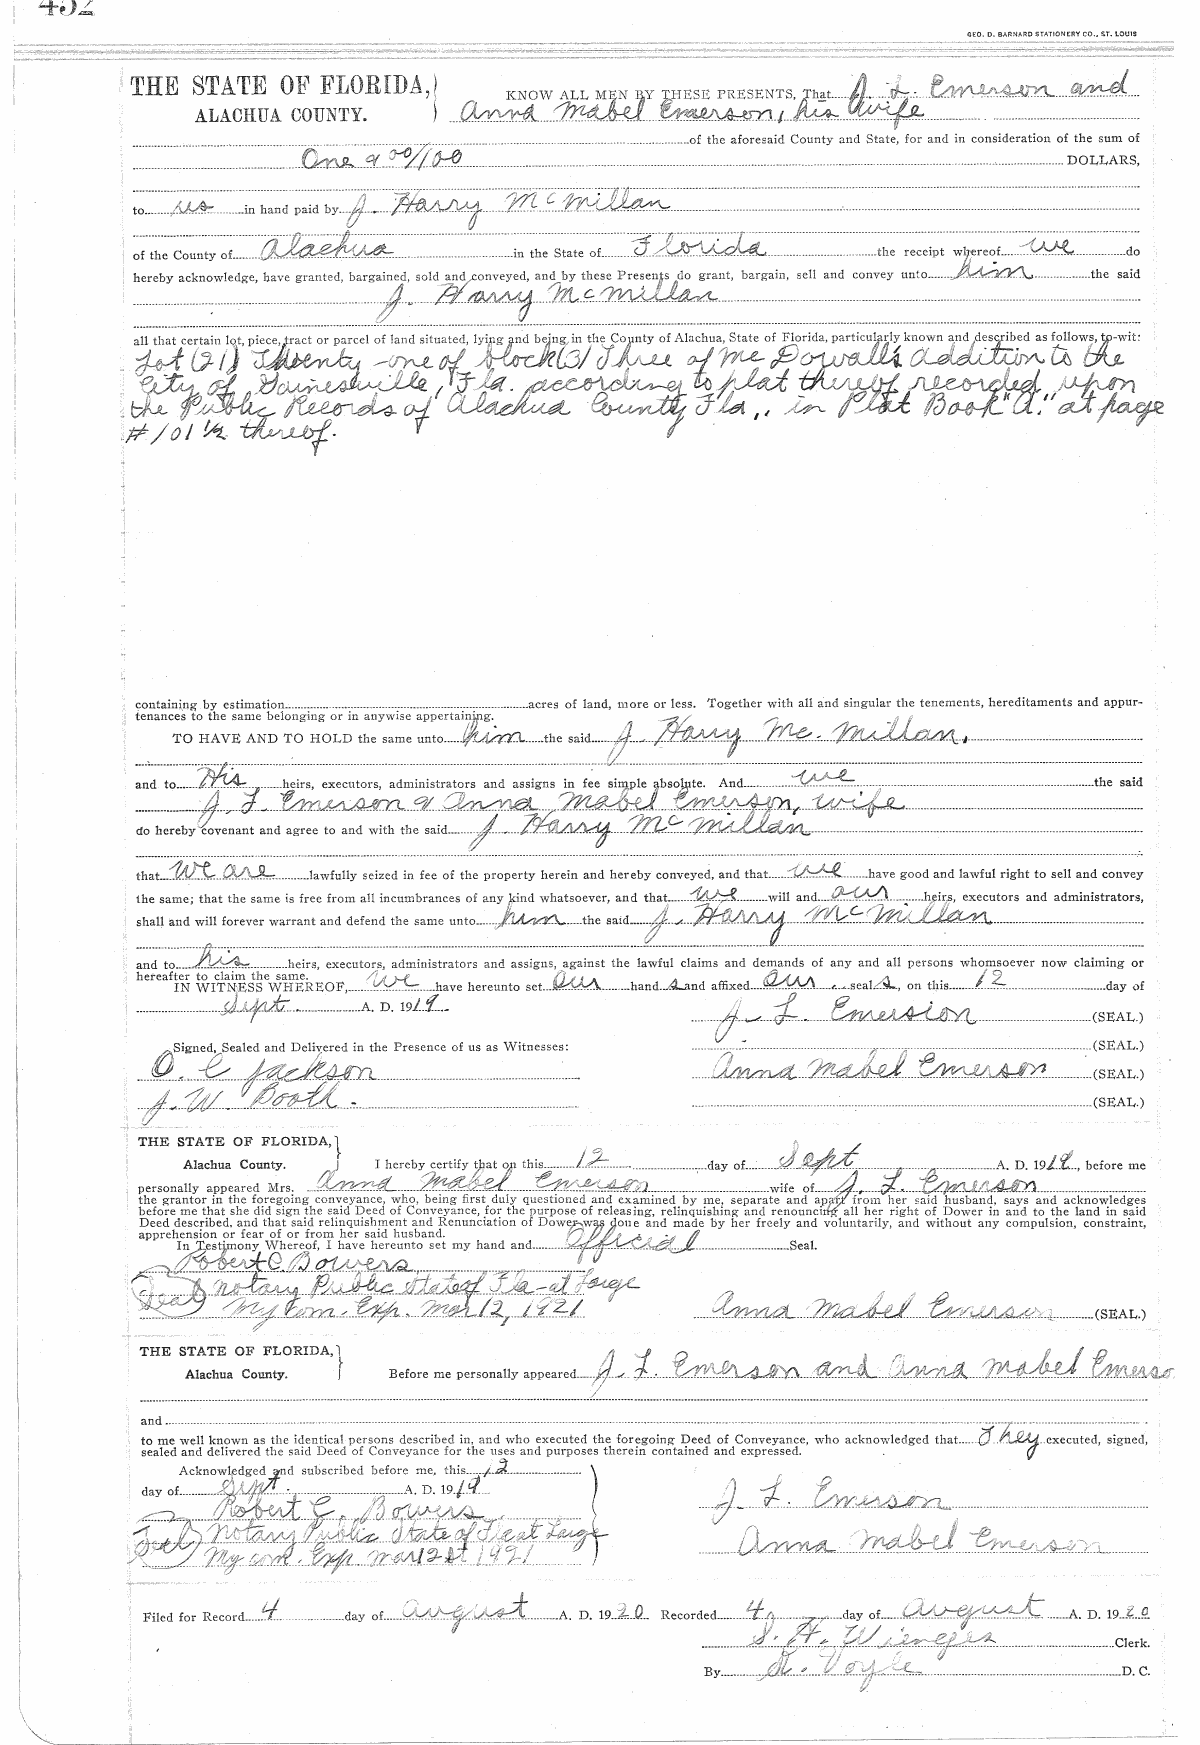 452
GEO. D. BARNARD STATIONERY CO., ST. LOUIS
THE STATE OF FLORIDA,
ALACHUA COUNTY.
KNOW ALL MEN BY THESE PRESENTS, That J. L. Emerson and
Anna Mabel Emerson, his wife
of the aforesaid County and State, for and in consideration of the sum of
One & 00/100 DOLLARS,
to us in hand paid by J. Harry McMillan
of the County of Alachua in the State of Florida the receipt whereof we do
hereby acknowledge, have granted, bargained, sold and conveyed, and by these Presents do grant, bargain, sell and convey unto him the said
J. Harry McMillan
all that certain lot, piece, tract or parcel of land situated, lying and being in the County of Alachua, State of Florida, particularly known and described as follows, to-wit:
Lot (21) Twenty-one of block (3) Three of Mc Dowall's addition to the
City of Gainesville, Fla. according to plat thereof recorded upon
the Public Records of Alachua County Fla,, in Plat Book "A." at page
#101 ½ thereof.
containing by estimation acres of land, more or less. Together with all and singular the tenements, hereditaments and appur-
tenances to the same belonging or in anywise appertaining.
TO HAVE AND TO HOLD the same unto him the said J. Harry Mc. Millan.
and to His heirs, executors, administrators and assigns in fee simple absolute. And we the said
J. L. Emerson & Anna Mabel Emerson, wife
do hereby covenant and agree to and with the said J. Harry McMillan
that we are lawfully seized in fee of the property herein and hereby conveyed, and that we have good and lawful right to sell and convey
the same; that the same is free from all incumbrances of any kind whatsoever, and that we will and our heirs, executors and administrators,
shall and will forever warrant and defend the same unto him the said J. Harry McMillan
and to his heirs, executors, administrators and assigns, against the lawful claims and demands of any and all persons whomsoever now claiming or
hereafter to claim the same.
IN WITNESS WHEREOF, we have hereunto set our hand s and affixed our seal s, on this 12 day of
Sept. A. D. 1919.
J. L. Emersion (SEAL.)
Signed, Sealed and Delivered in the Presence of us as Witnesses: (SEAL.)
O. C Jackson Anna Mabel Emerson (SEAL.)
J. W. Booth. (SEAL.)
THE STATE OF FLORIDA,
Alachua County. I hereby certify that on this 12 day of Sept A. D. 1919, before me
personally appeared Mrs. Anna Mabel Emerson wife of J. L. Emerson
the grantor in the foregoing conveyance, who, being first duly questioned and examined by me, separate and apart from her said husband, says and acknowledges
before me that she did sign the said Deed of Conveyance, for the purpose of releasing, relinquishing and renouncing all her right of Dower in and to the land in said
Deed described, and that said relinquishment and Renunciation of Dower was done and made by her freely and voluntarily, and without any compulsion, constraint,
apprehension or fear of or from her said husband.
In Testimony Whereof, I have hereunto set my hand and Official Seal.
Robert C. Bowers
Seal Notary Public State of Fla - at Large
My Com. Exp. Mar 12, 1921 Anna Mabel Emerson (SEAL.)
THE STATE OF FLORIDA,
Alachua County. Before me personally appeared J. L. Emerson and Anna Mabel Emerso
and
to me well known as the identical persons described in, and who executed the foregoing Deed of Conveyance, who acknowledged that They executed, signed,
sealed and delivered the said Deed of Conveyance for the uses and purposes therein contained and expressed.
Acknowledged and subscribed before me, this 12
day of Sept. A. D. 1919
Robert C. Bowers J. L. Emerson
Seal Notary Public State of Fla at Large
My com. Exp. Mar 12 1921 Anna Mabel Emerson
Filed for Record 4 day of August A. D. 1920 Recorded 4 day of August A. D. 1920
S. H. Wienges Clerk.
By Voyle D. C.